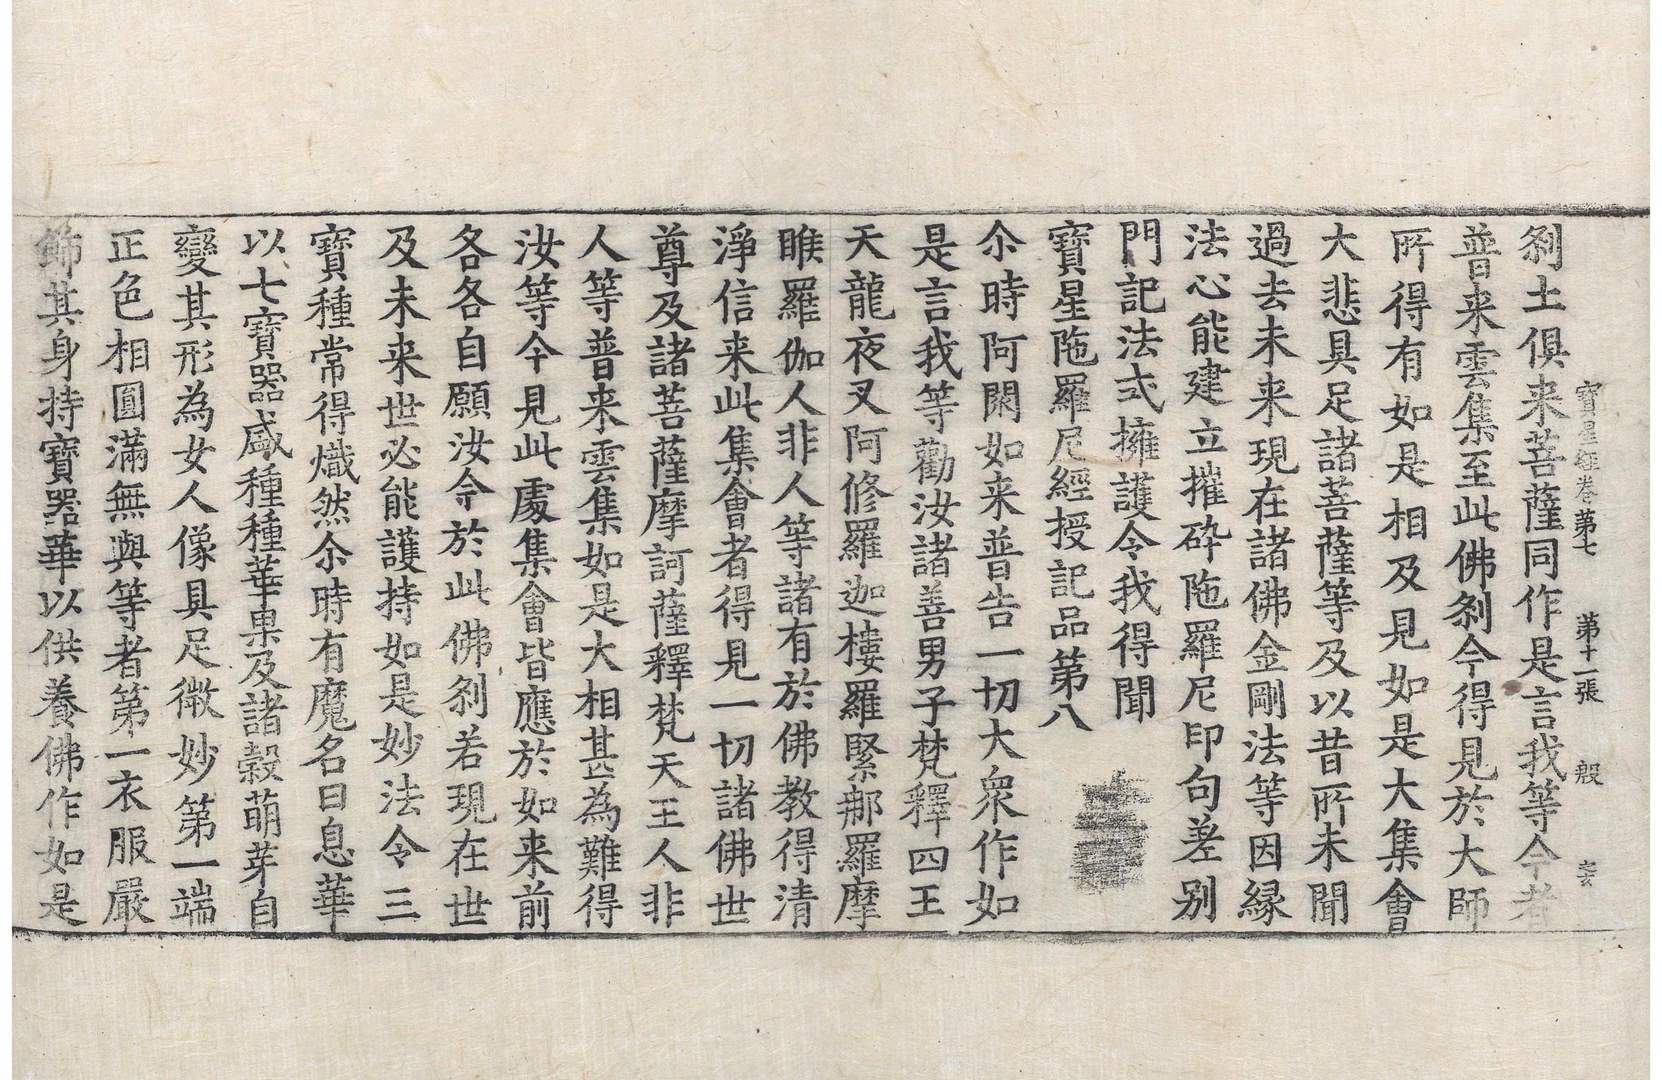 寶星經卷第七 第十一張 殷
刹土俱来菩薩同作是言我等今者
普来雲集至此佛刹今得見於大師
所得有如是相及見如是大集會
大悲具足諸菩薩等及以昔所未聞
過去未来現在諸佛金剛法等因縁
法心能建立摧碎陁羅尼印句差别
門記法式擁護令我得聞
寶星陁羅尼經授記品第八
尒時阿閦如来普告一切大衆作如
是言我等勸汝諸善男子梵釋四王
天龍夜叉阿修羅迦樓羅緊那羅摩
睺羅伽人非人等諸有於佛教得清
淨信来此集會者得見一切諸佛世
尊及諸菩薩摩訶薩釋梵天王人非
人等普来雲集如是大相甚為難得
汝等今見此處集會皆應於如来前
各各自願汝令於此佛刹若現在世
及未来世必能護持如是妙法令三
寶種常得熾然尒時有魔名曰息華
以七寶器盛種種華菓及諸穀萌芽自
變其形為女人像具足微妙第一端
正色相圓滿無與等者第一衣服嚴
飾其身持寶器華以供養佛作如是